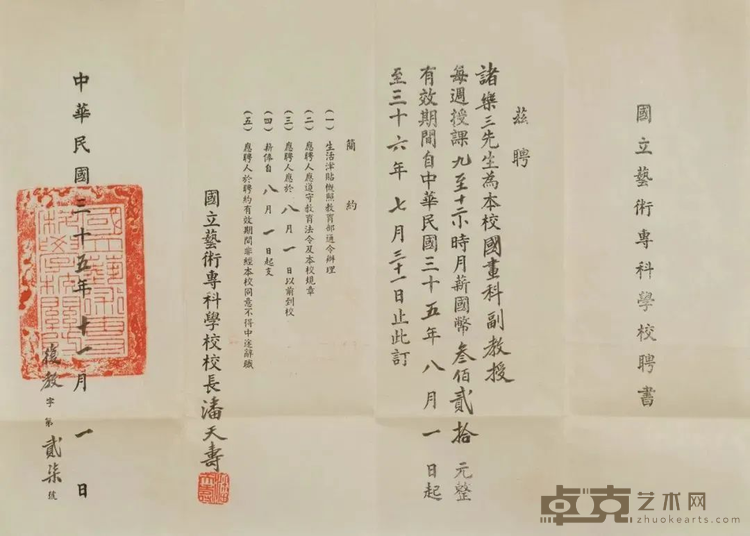 國立藝術專科學校聘書
茲聘
諸樂三先生為本校國畫科副教授
每週授課九至十二小時月薪國幣叁佰貳拾元整
有效期間自中華民國三十五年八月一日起
至三十六年七月三十一日止此訂
簡約
(一)生活津貼概照教育部通令辦理
(二)應聘人應遵守教育法令及本校規章
(三)應聘人應於八月一日以前到校
(四)薪俸自八月一日起支
(五)應聘人於聘約有效期間非經本校同意不得中途辭職
國立藝術專科學校校長潘天壽
中華民國三十五年十一月一日
教字第貳柒號
卓克艺术网
zhuokearts.com